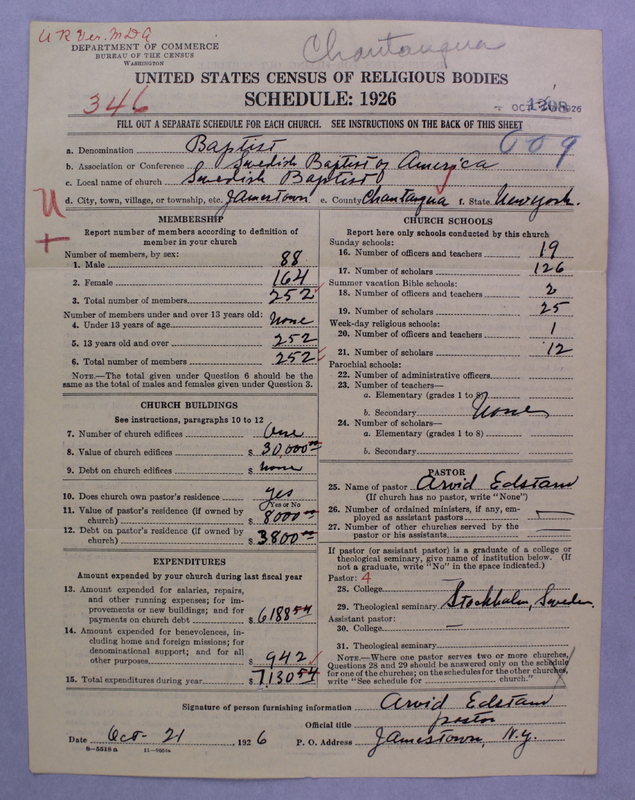 U R Ver. M.D.G
Chautauqua
DEPARTMENT OF COMMERCE
BUREAU OF THE CENSUS
WASHINGTON
UNITED STATES CENSUS OF RELIGIOUS BODIES
346
SCHEDULE: 1926
OCT 1926
FILL OUT A SEPARATE SCHEDULE FOR EACH CHURCH. SEE INSTRUCTIONS ON THE BACK OF THIS SHEET
609
a. Denomination Baptist
b. Association or Conference Swedish Baptist of America
c. Local name of church Swedish Baptist
d. City, town, village, or township, etc. Jamestown e. County Chautauqua f. State New York.
MEMBERSHIP
Report number of members according to definition of
member in your church
Number of members, by sex:
1. Male 88
2. Female 164
3. Total number of members 252
Number of members under and over 13 years old:
4. Under 13 years of age None
5. 13 years old and over 252
6. Total number of members 252
NOTE.—The total given under Question 6 should be the
same as the total of males and females given under Question 3.
CHURCH BUILDINGS
See instructions, paragraphs 10 to 12
7. Number of church edifices One
8. Value of church edifices $ 30,000.00
9. Debt on church edifices $ none
10. Does church own pastor's residence yes
(Yes or No)
11. Value of pastor's residence (if owned by
church) $ 8000.00
12. Debt on pastor's residence (if owned by
church) $ 3800.00
EXPENDITURES
Amount expended by your church during last fiscal year
13. Amount expended for salaries, repairs,
and other running expenses; for im-
provements or new buildings; and for
payments on church debt $ 6188.54
14. Amount expended for benevolences, in-
cluding home and foreign missions; for
denominational support; and for all
other purposes $ 942
15. Total expenditures during year $ 7130.54
CHURCH SCHOOLS
Report here only schools conducted by this church
Sunday schools:
16. Number of officers and teachers 19
17. Number of scholars 126
Summer vacation Bible schools:
18. Number of officers and teachers 2
19. Number of scholars 25
Week-day religious schools:
20. Number of officers and teachers 1
21. Number of scholars 12
Parochial schools:
22. Number of administrative officers
23. Number of teachers—
a. Elementary (grades 1 to 8)
b. Secondary None
24. Number of scholars—
a. Elementary (grades 1 to 8)
b. Secondary
PASTOR
25. Name of pastor Arvid Edstam
(If church has no pastor, write "None")
26. Number of ordained ministers, if any, em-
ployed as assistant pastors —
27. Number of other churches served by the
pastor or his assistants
If pastor (or assistant pastor) is a graduate of a college or
theological seminary, give name of institution below. (If
not a graduate, write "No" in the space indicated.)
Pastor: 4
28. College —
29. Theological seminary Stockholm, Sweden.
Assistant pastor:
30. College —
31. Theological seminary
NOTE.—Where one pastor serves two or more churches,
Questions 28 and 29 should be answered only on the schedule
for one of the churches; on the schedules for the other churches,
write "See schedule for church."
Signature of person furnishing information Arvid Edstam
Official title pastor
Date Oct- 21, 1926 P. O. Address Jamestown, N.Y.
8—5518 a